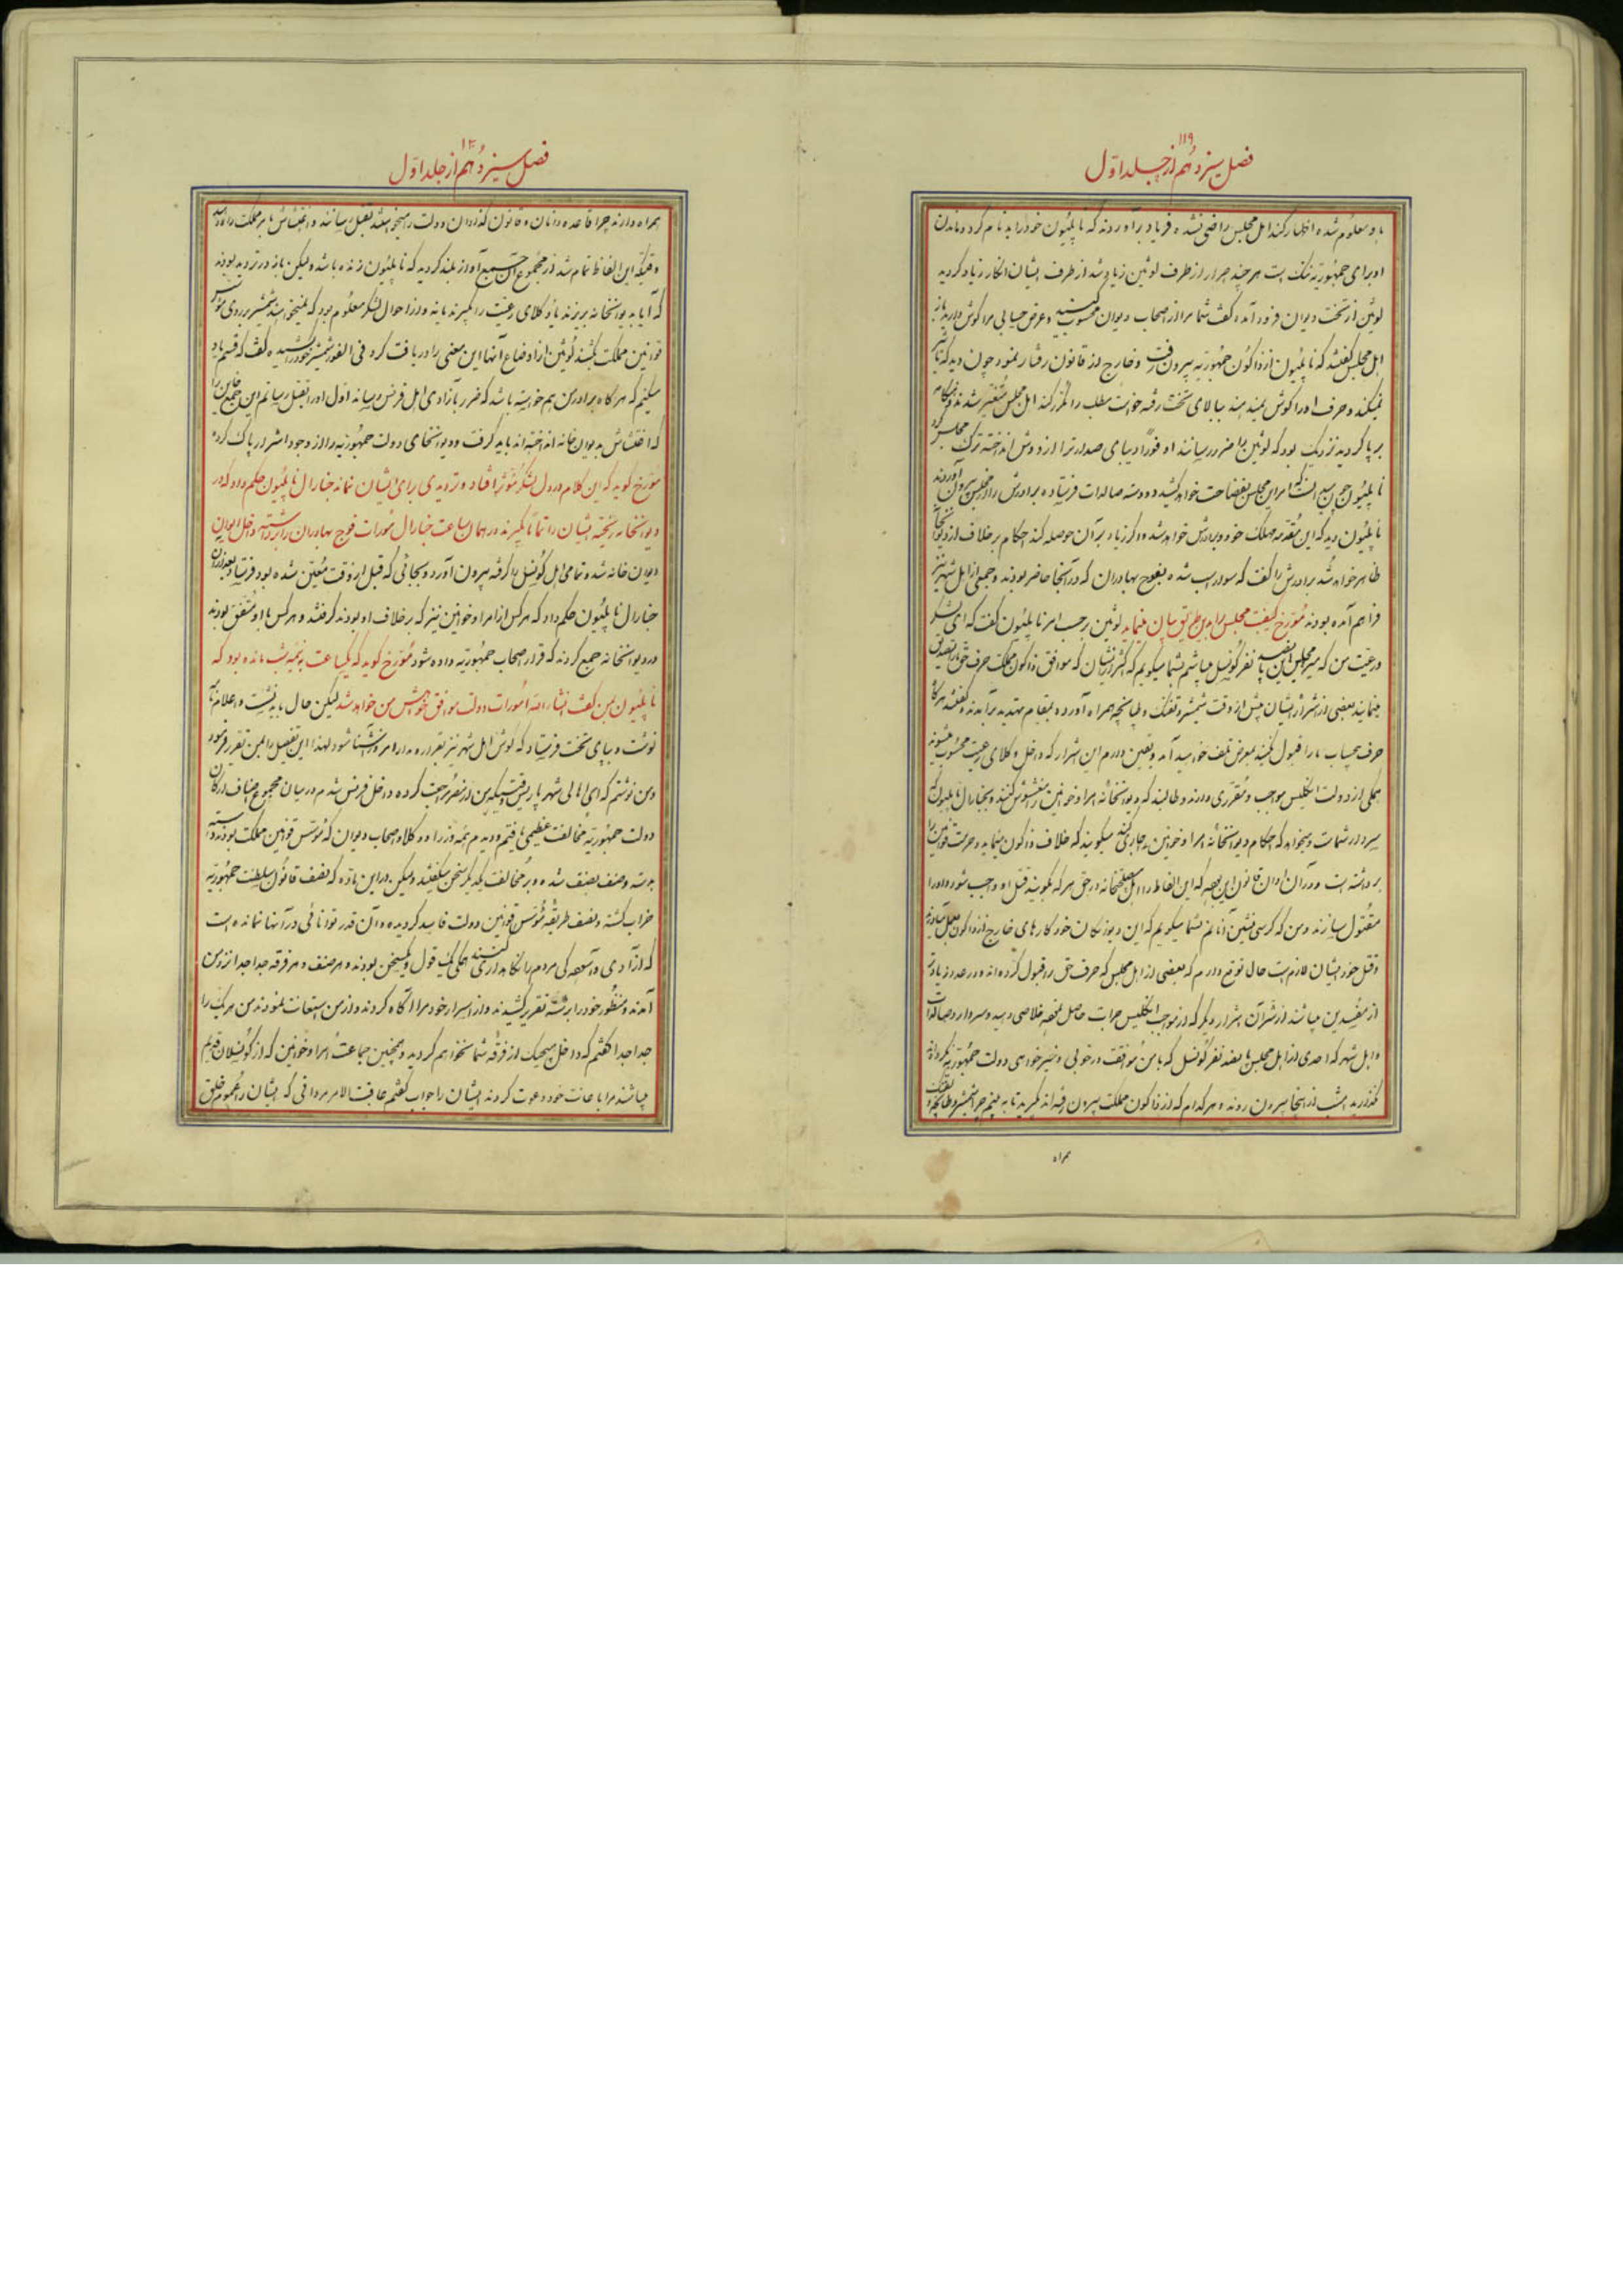 ۱۱۹
فصل سیزدهم از جلد اول
باو معلوم شده اظهار کند اهل مجلس راضی نشده فریاد برآوردند که ناپلئون خود را بدنام کرد و ماندن
او برای جمهوریه ننک است هر چند اصرار از طرف لوئین زیاد شد از طرف ایشان انکار زیاد کردید
لوئین از تخت دیوان فرود آمده کفت شما مرا از اصحاب دیوان محسوب و عرض حسابی مرا کوش
اهل مجلس کفتند که ناپلئون از ذاکون جمهوریه بیرون رفت و خارج از قانون رفتار نمود چون دید که
نمیکند و حرف او را کوش نمیدهند ببالای تخت رفته خواست مطلب را مکرر کند اهل مجلس متغیر شدند
برپا کردید نزدیک بود که لوئین را ضرر رسانند او فوراً دیبای صدارت را از دوش انداخته ترک مجلس
ناپلئون چون امر این مجلس بفضاحت خواهد کشید دو دسته صالدات فرستاده برادرش را از مجلس بیرون آوردند
ناپلئون دید که این مقدمه مهلک خود و برادرش خواهد شد و اکر زیاد بر آن حوصله کند احکام بر خلاف از
ظاهر خواهد شد برادرش را کفت که سوار اسب شده بفوج بهادران که در آنجا حاضر بودند و جمعی از اهل شهر نیز
فراهم آمده بودند مورخ کیفیت مجلس را باین طریق بیان مینماید لوئین حسب امر ناپلئون کفت که ای لشکر
و رعیت من که میر مجلس این پانصد نفر کونسل میباشم بشما میکویم که اکثر از ایشان که موافق ذاکون مملکت حرف حق را
مینمایند بعضی از اشرار ایشان پیش از وقت شمشیر و تفنک و طپانچه همراه آورده بمقام تهدید برآمدند و کفتند هرکاه
حرف بیحساب ما را قبول نکنید بمعرض تلف خواهید آمد و یقین دارم این اشرار که داخل وکلای رعیت محسوب میشوند
همکی از دولت انکلیس مواجب و مقرری دارند و طالبند که دیوانخانه امرا و خوانین را مغشوش کنند و بجنارال ناپلئون که
سردار شماست و میخواهد که احکام دیوانخانه امرا و خوانین را جاری کند میکویند که خلاف ذاکون مینماید و حرمت قوانین را
برداشته است و در آن اوان قانون این بوده که این الفاظ را اهل دیوانخانه در حق هر که بکویند قتل او واجب شود و او را
مقتول سازند و من که کرسی نشین آنانم بشما میکویم که این دیوانکان خود کارهای خارج از ذاکون بعمل میآورند
و قتل خود ایشان لازم است حال توقع دارم که بعضی از اهل مجلس که حرف حق را قبول کرده‌اند و در صدد
از مفسدین میباشند از شر آن اشرار دیکر که از مواجب انکلیس جرات حاصل نموده خلاصی دهید و سردار و صالدات
و اهل شهر که احدی از اهل مجلس پانصد نفر کونسل که با من موافقت در خوبی و خیرخواهی دولت جمهوریه نکرده‌اند
نکذارید امشب از اینجا بیرون روند و هر کدام که از ذاکون مملکت بیرون رفته‌اند بکیرید تا به بینم چرا شمشیر و طپانچه و تفنک
همراه
۱۲۰
فصل سیزدهم از جلد اول
همراه دارند چرا قاعده‌دانان و قانون کذاران دولت را میخواهند بقتل رسانند و اغتشاش بامر مملکت راه دهند
وقتیکه این الفاظ تمام شد از مجموع آن جمع آواز بلند کردید که ناپلئون زنده باشد ولیکن باز در تردید بودند
که آیا به دیوانخانه بریزند یا وکلای رعیت را بکیرند یا نه و از احوال لشکر معلوم بود که نمیخواهند شمشیر بر روی
قوانین مملکت بکشند لوئین از اوضاع آنها این معنی را دریافت کرد فی الفور شمشیر خود را کشیده کفت که قسم یاد
میکنم که هر کاه برادر من هم خواسته باشد که ضرر بآزادی اهل فرنس رساند اول او را بقتل رسانم این جمع را
که اغتشاش بدیوان خانه انداخته‌اند باید کرفت و دیوانخانه‌ای دولت جمهوریه را از وجود اشرار پاک کرد
مورخ کوید که این کلام در دل لشکر مؤثر افتاد و تردیدی برای ایشان نمانده جنارال ناپلئون حکم داد که در
دیوانخانه ریخته ایشان را تماماً بکیرند در همان ساعت جنارال مورات فوج بهادران را برداشته داخل ایوان
دیوان خانه شد و تمامی اهل کونسل را کرفته بیرون آورد و بجائی که قبل از وقت معین شده بود فرستاد بعد از آن
جنارال ناپلئون حکم داد که هر کس از امرا و خوانین نیز که بر خلاف او بودند کرفتند و هر کس با او متفق بودند
در دیوانخانه جمع کردند که قرار اصحاب جمهوریه داده شود مورخ کوید که یکساعت به نیمه شب مانده بود که
ناپلئون بمن کفت انشاء الله امورات دولت موافق خواهش من خواهد شد لیکن حال باید نشست و اعلام
نوشت و بپای تخت فرستاد که کوش اهل شهر نیز بقرارداد ما را امروز آشنا شود لهذا این تفصیل را بمن تقریر فرمود
و من نوشتم که ای اهالی شهر پاریس وقتیکه من از مصر مراجعت کرده داخل فرنس شدم در میان مجموع اصناف ارکان
دولت جمهوریه مخالفت عظیمی یافتم و دیدم همه وزرا و وکلا و اصحاب دیوان که مؤسس قوانین مملکت بودند دسته
بدسته و صنف بصنف شده و بر مخالفت یکدیکر سخن میکفتند ولیکن در این ماده که نصف قانون سلطنت جمهوریه
خراب کشته و نصف طریقه مؤسس قوانین دولت فاسد کردیده و آن قدر توانائی در آنها نمانده است
که آزادی و آسوده‌کی مردم را نکاهداری کنند همکی یک قول و یکسخن بودند و هر صنف و هر فرقه جدا جدا نزد من
آمدند و منظور خود را برشته تقریر کشیدند و از اسرار خود مرا آکاه کردند و از من استعانت نمودند من هر یک را
جدا جدا کفتم که داخل هیچیک از فرقه شما نخواهم کردید و همچنین جماعت امرا و خوانین که از کونسلان قدیم
میباشند مرا باعانت خود دعوت کردند ایشان را جواب کفتم عاقبت الامر مردانی که ایشان را عموم خلق